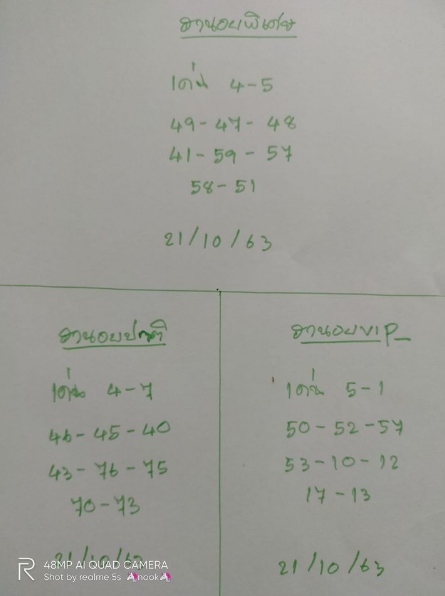 ฮานอยพิเศษ
เด่น 4-5
49-47-48
41-59-57
58-51
21/10/63
ฮานอยปกติ
เด่น 4-7
46-45-40
43-76-75
70-73
21/10/63
ฮานอยVIP
เด่น 5-1
50-52-57
53-10-12
17-13
21/10/63
48MP AI QUAD CAMERA
Shot by realme 5s AnookA